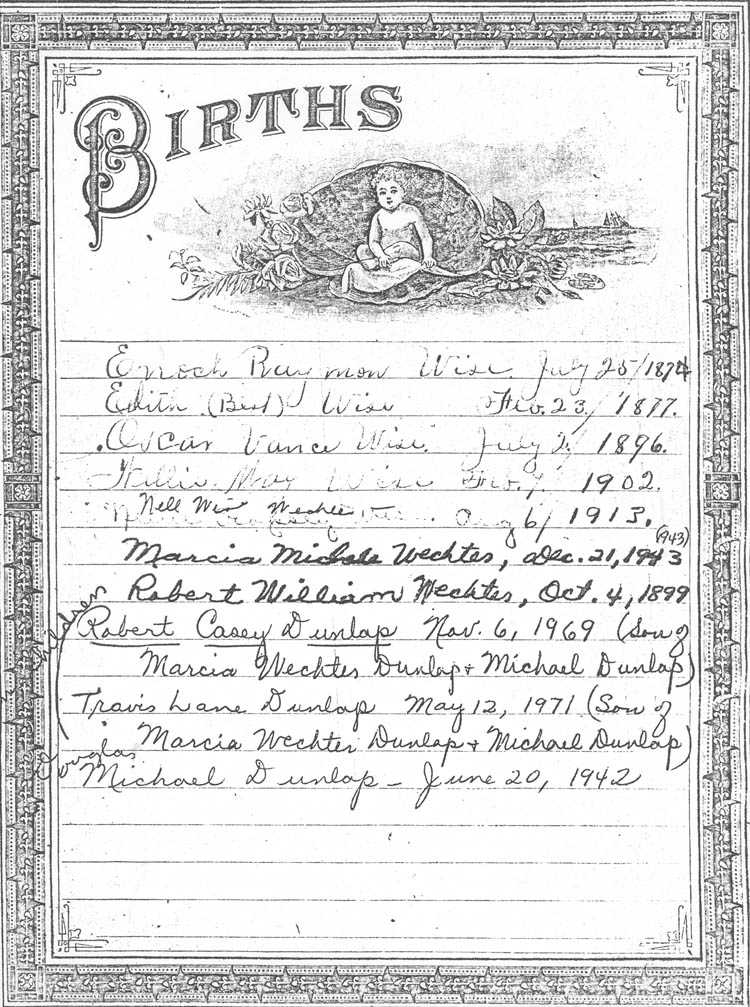 BIRTHS
Enoch Raymon Wise July 25/1874
Edith (Best) Wise Feb. 23/1877.
Oscar Vance Wise. July 2, 1896.
May Wise Feb. 1902.
Nell Wise
Aug 6/1913.
(1943)
Marcia Michele Wechter, Dec. 21, 1943
Robert William Wechter, Oct. 4, 1899
children
Robert Casey Dunlap Nov. 6, 1969 (Son of
Marcia Wechter Dunlap + Michael Dunlap)
Travis Lane Dunlap May 12, 1971 (Son of
Marcia Wechter Dunlap + Michael Dunlap)
Douglas
Michael Dunlap - June 20, 1942